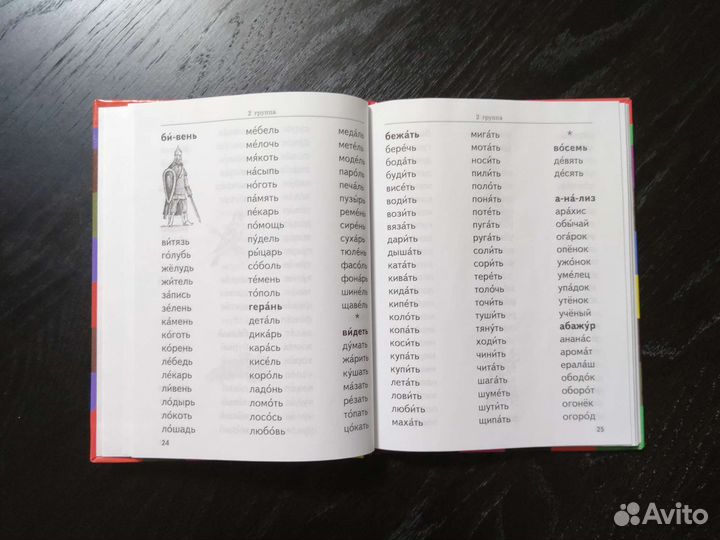 2 группа
би́-вень
ви́тязь
го́лубь
жёлудь
жи́тель
за́пись
зе́лень
ка́мень
ко́готь
ко́рень
ле́бедь
ле́карь
ли́вень
ло́дырь
ло́коть
ло́шадь
24
ме́бель
ме́лочь
мя́коть
на́сыпь
но́готь
па́мять
пе́карь
по́мощь
пу́дель
ры́царь
со́боль
те́мень
то́поль
гера́нь
дета́ль
дика́рь
кара́сь
кисе́ль
коро́ль
ладо́нь
ломо́ть
лосо́сь
любо́вь
меда́ль
мете́ль
моде́ль
паро́ль
печа́ль
пузы́рь
реме́нь
сире́нь
суха́рь
тюле́нь
фасо́ль
фона́рь
шине́ль
щаве́ль
*
ви́деть
ду́мать
жа́рить
ку́шать
ма́зать
ре́зать
то́пать
цо́кать
2 группа
бежа́ть
бере́чь
бода́ть
буди́ть
висе́ть
води́ть
вози́ть
вяза́ть
дари́ть
дыша́ть
ката́ть
кива́ть
кида́ть
кипе́ть
коло́ть
копа́ть
коси́ть
купа́ть
купи́ть
лета́ть
лови́ть
люби́ть
маха́ть
мига́ть
мота́ть
носи́ть
пили́ть
поло́ть
поня́ть
поте́ть
пуга́ть
руга́ть
соли́ть
сори́ть
тере́ть
толо́чь
точи́ть
туши́ть
тяну́ть
ходи́ть
чини́ть
чита́ть
шага́ть
шуме́ть
шути́ть
щипа́ть
*
во́семь
де́вять
де́сять
а-на́-лиз
ара́хис
обы́чай
ога́рок
опёнок
ужо́нок
уме́лец
упа́док
утёнок
учёный
абажу́р
анана́с
арома́т
ерала́ш
ободо́к
оборо́т
огонёк
огоро́д
25
Avito